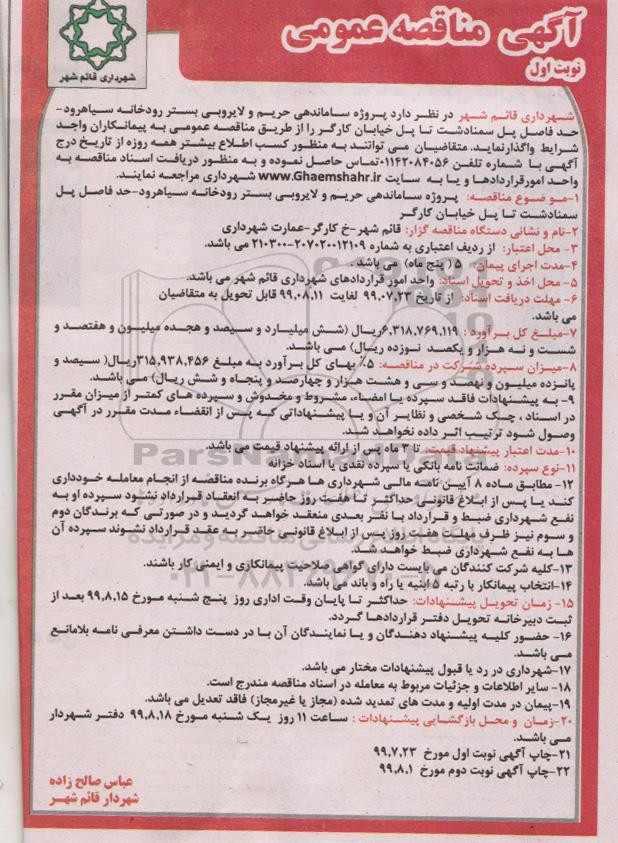 آگهی مناقصه عمومی
نوبت اول
شهرداری قائم شهر
شهرداری قائم شهر در نظر دارد پروژه ساماندهی حریم و لایروبی بستر رودخانه سیاهرود-
حد فاصل پل سمنادشت تا پل خیابان کارگر را از طریق مناقصه عمومی به پیمانکاران واجد
شرایط واگذارنماید. متقاضیان می توانند به منظور کسب اطلاع بیشتر همه روزه از تاریخ درج
آگهی با شماره تلفن ۰۱۱۴۲۰۸۴۰۵۶تماس حاصل نموده و به منظور دریافت اسناد مناقصه به
واحد امورقراردادها و یا به سایت www.Ghaemshahr.ir شهرداری مراجعه نمایند.
۱-مو ضوع مناقصه: پروژه ساماندهی حریم و لایروبی بستر رودخانه سیاهرود-حد فاصل پل
سمنادشت تا پل خیابان کارگر
۲-نام و نشانی دستگاه مناقصه گزار: قائم شهر-خ کارگر-عمارت شهرداری
۳- محل اعتبار: از ردیف اعتباری به شماره ۲۰۷۰۲۰۰۱۲۱۰۹-۲۱۰۳۰۰ می باشد.
۴-مدت اجرای پیمان: ۵ ( پنج ماه) می باشد .
۵- محل اخذ و تحویل اسناد: واحد امور قراردادهای شهرداری قائم شهر می باشد.
۶- مهلت دریافت اسناد: از تاریخ ۹۹.۰۷.۲۳ لغایت ۹۹.۰۸.۱۱ قابل تحویل به متقاضیان
می باشد.
۷-مبلغ کل برآورد : ۶.۳۱۸.۷۶۹.۱۱۹ریال (شش میلیارد و سیصد و هجده میلیون و هفتصد و
شست و نه هزار و یکصد نوزده ریال) می باشد.
۸-میزان سپرده شرکت در مناقصه: ۵٪ بهای کل برآورد به مبلغ ۳۱۵,۹۳۸,۴۵۶ریال( سیصد و
پانزده میلیون و نهصد و سی و هشت هزار و چهارصد و پنجاه و شش ریال) می باشد.
۹- به پیشنهادات فاقد سپرده یا امضاء، مشروط و مخدوش و سپرده های کمتر از میزان مقرر
در اسناد ، چک شخصی و نظایر آن و یا پیشنهاداتی که پس از انقضاء مدت مقرر در آگهی
وصول شود ترتیب اثر داده نخواهد شد.
۱۰-مدت اعتبار پیشنهاد قیمت: تا ۳ ماه پس از ارائه پیشنهاد قیمت می باشد.
۱۱-نوع سپرده: ضمانت نامه بانکی یا سپرده نقدی یا اسناد خزانه
۱۲- مطابق ماده ۸ آیین نامه مالی شهرداری ها هرگاه برنده مناقصه از انجام معامله خودداری
کند یا پس از ابلاغ قانونی حداکثر تا هفت روز حاضر به انعقاد قرارداد نشود سپرده او به
نفع شهرداری ضبط و قرارداد با نفر بعدی منعقد خواهد گردید و در صورتی که برندگان دوم
و سوم نیز ظرف مهلت هفت روز پس از ابلاغ قانونی حاضر به عقد قرارداد نشوند سپرده آن
ها به نفع شهرداری ضبط خواهد شد.
۱۳-کلیه شرکت کنندگان می بایست دارای گواهی صلاحیت پیمانکاری و ایمنی کار باشند.
۱۴-انتخاب پیمانکار با رتبه ۵ ابنیه یا راه و باند می باشد.
۱۵- زمان تحویل پیشنهادات: حداکثر تا پایان وقت اداری روز پنج شنبه مورخ ۹۹.۸.۱۵ بعد از
ثبت دبیرخانه تحویل دفتر قراردادها گردد.
۱۶- حضور کلیه پیشنهاد دهندگان و یا نمایندگان آن با در دست داشتن معرفی نامه بلامانع
می باشد.
۱۷-شهرداری در رد یا قبول پیشنهادات مختار می باشد.
۱۸- سایر اطلاعات و جزئیات مربوط به معامله در اسناد مناقصه مندرج است.
۱۹-پیمان در مدت اولیه و مدت های تمدید شده (مجاز یا غیرمجاز) فاقد تعدیل می باشد.
۲۰-زمان و محل بازگشایی پیشنهادات : ساعت ۱۱ روز یک شنبه مورخ ۹۹.۸.۱۸ دفتر شهردار
می باشد.
۲۱-چاپ آگهی نوبت اول مورخ ۹۹.۷.۲۳
۲۲-چاپ آگهی نوبت دوم مورخ ۹۹.۸.۱
عباس صالح زاده
شهردار قائم شهر